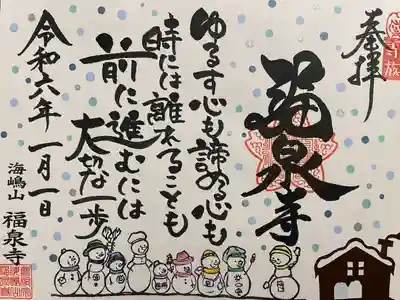 奉拝
福泉寺
ゆるす心も諦める心も
時には離れることも
前に進むには
大切な一歩
令和六年 一月一日
海嶋山 福泉寺